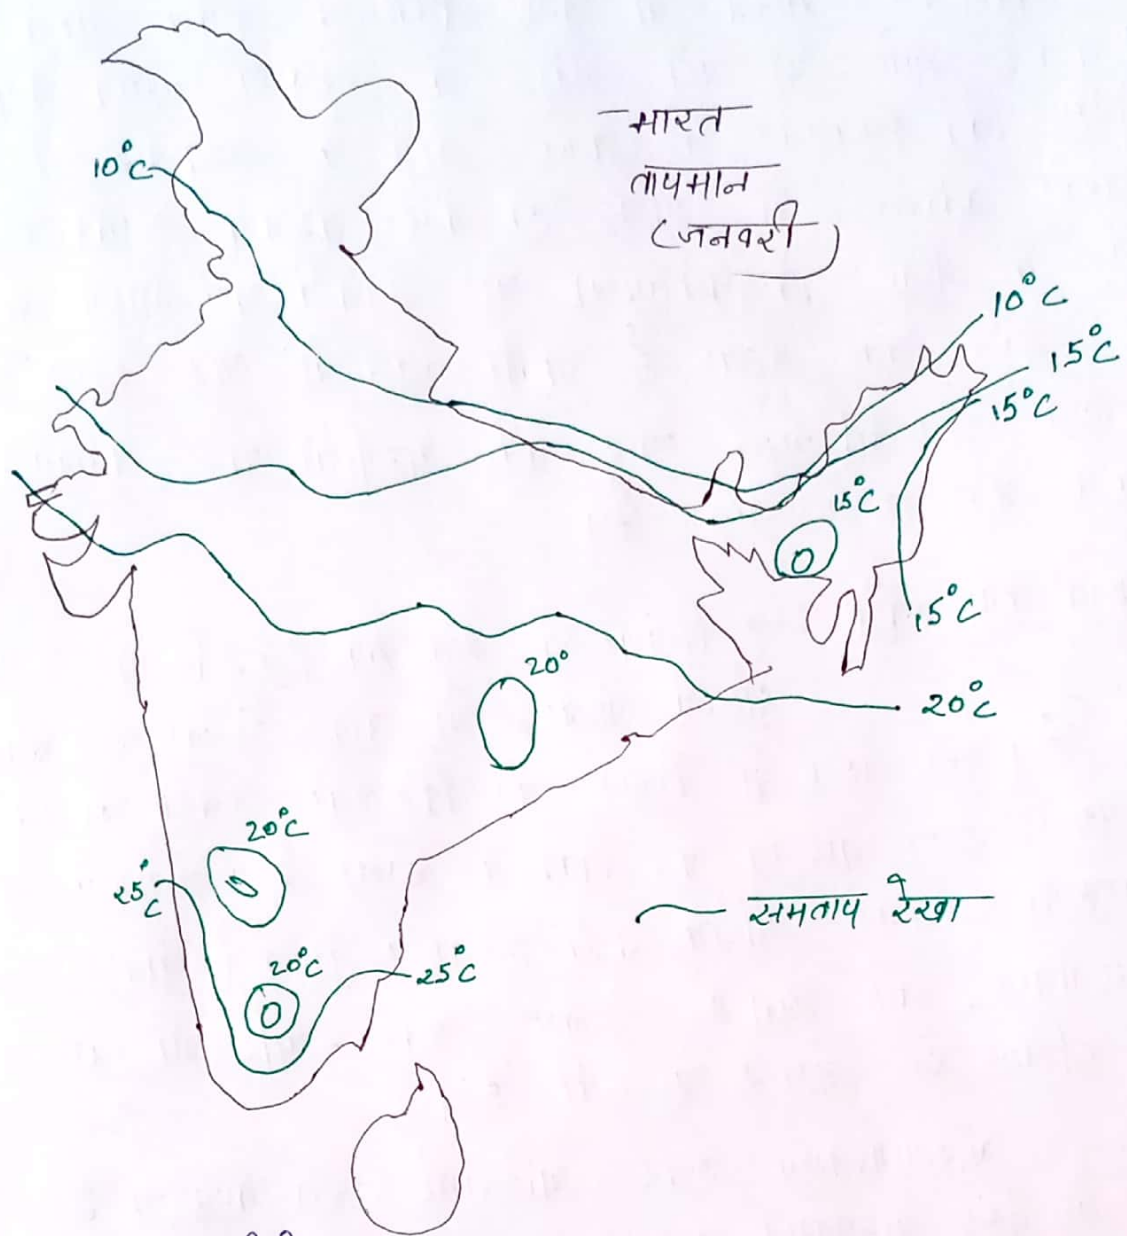 भारत
तापमान
(जनवरी)
10°C
10°C
15°C
15°C
15°C
15°C
20°
20°C
20°C
25°C
20°C
25°C
समताप रेखा